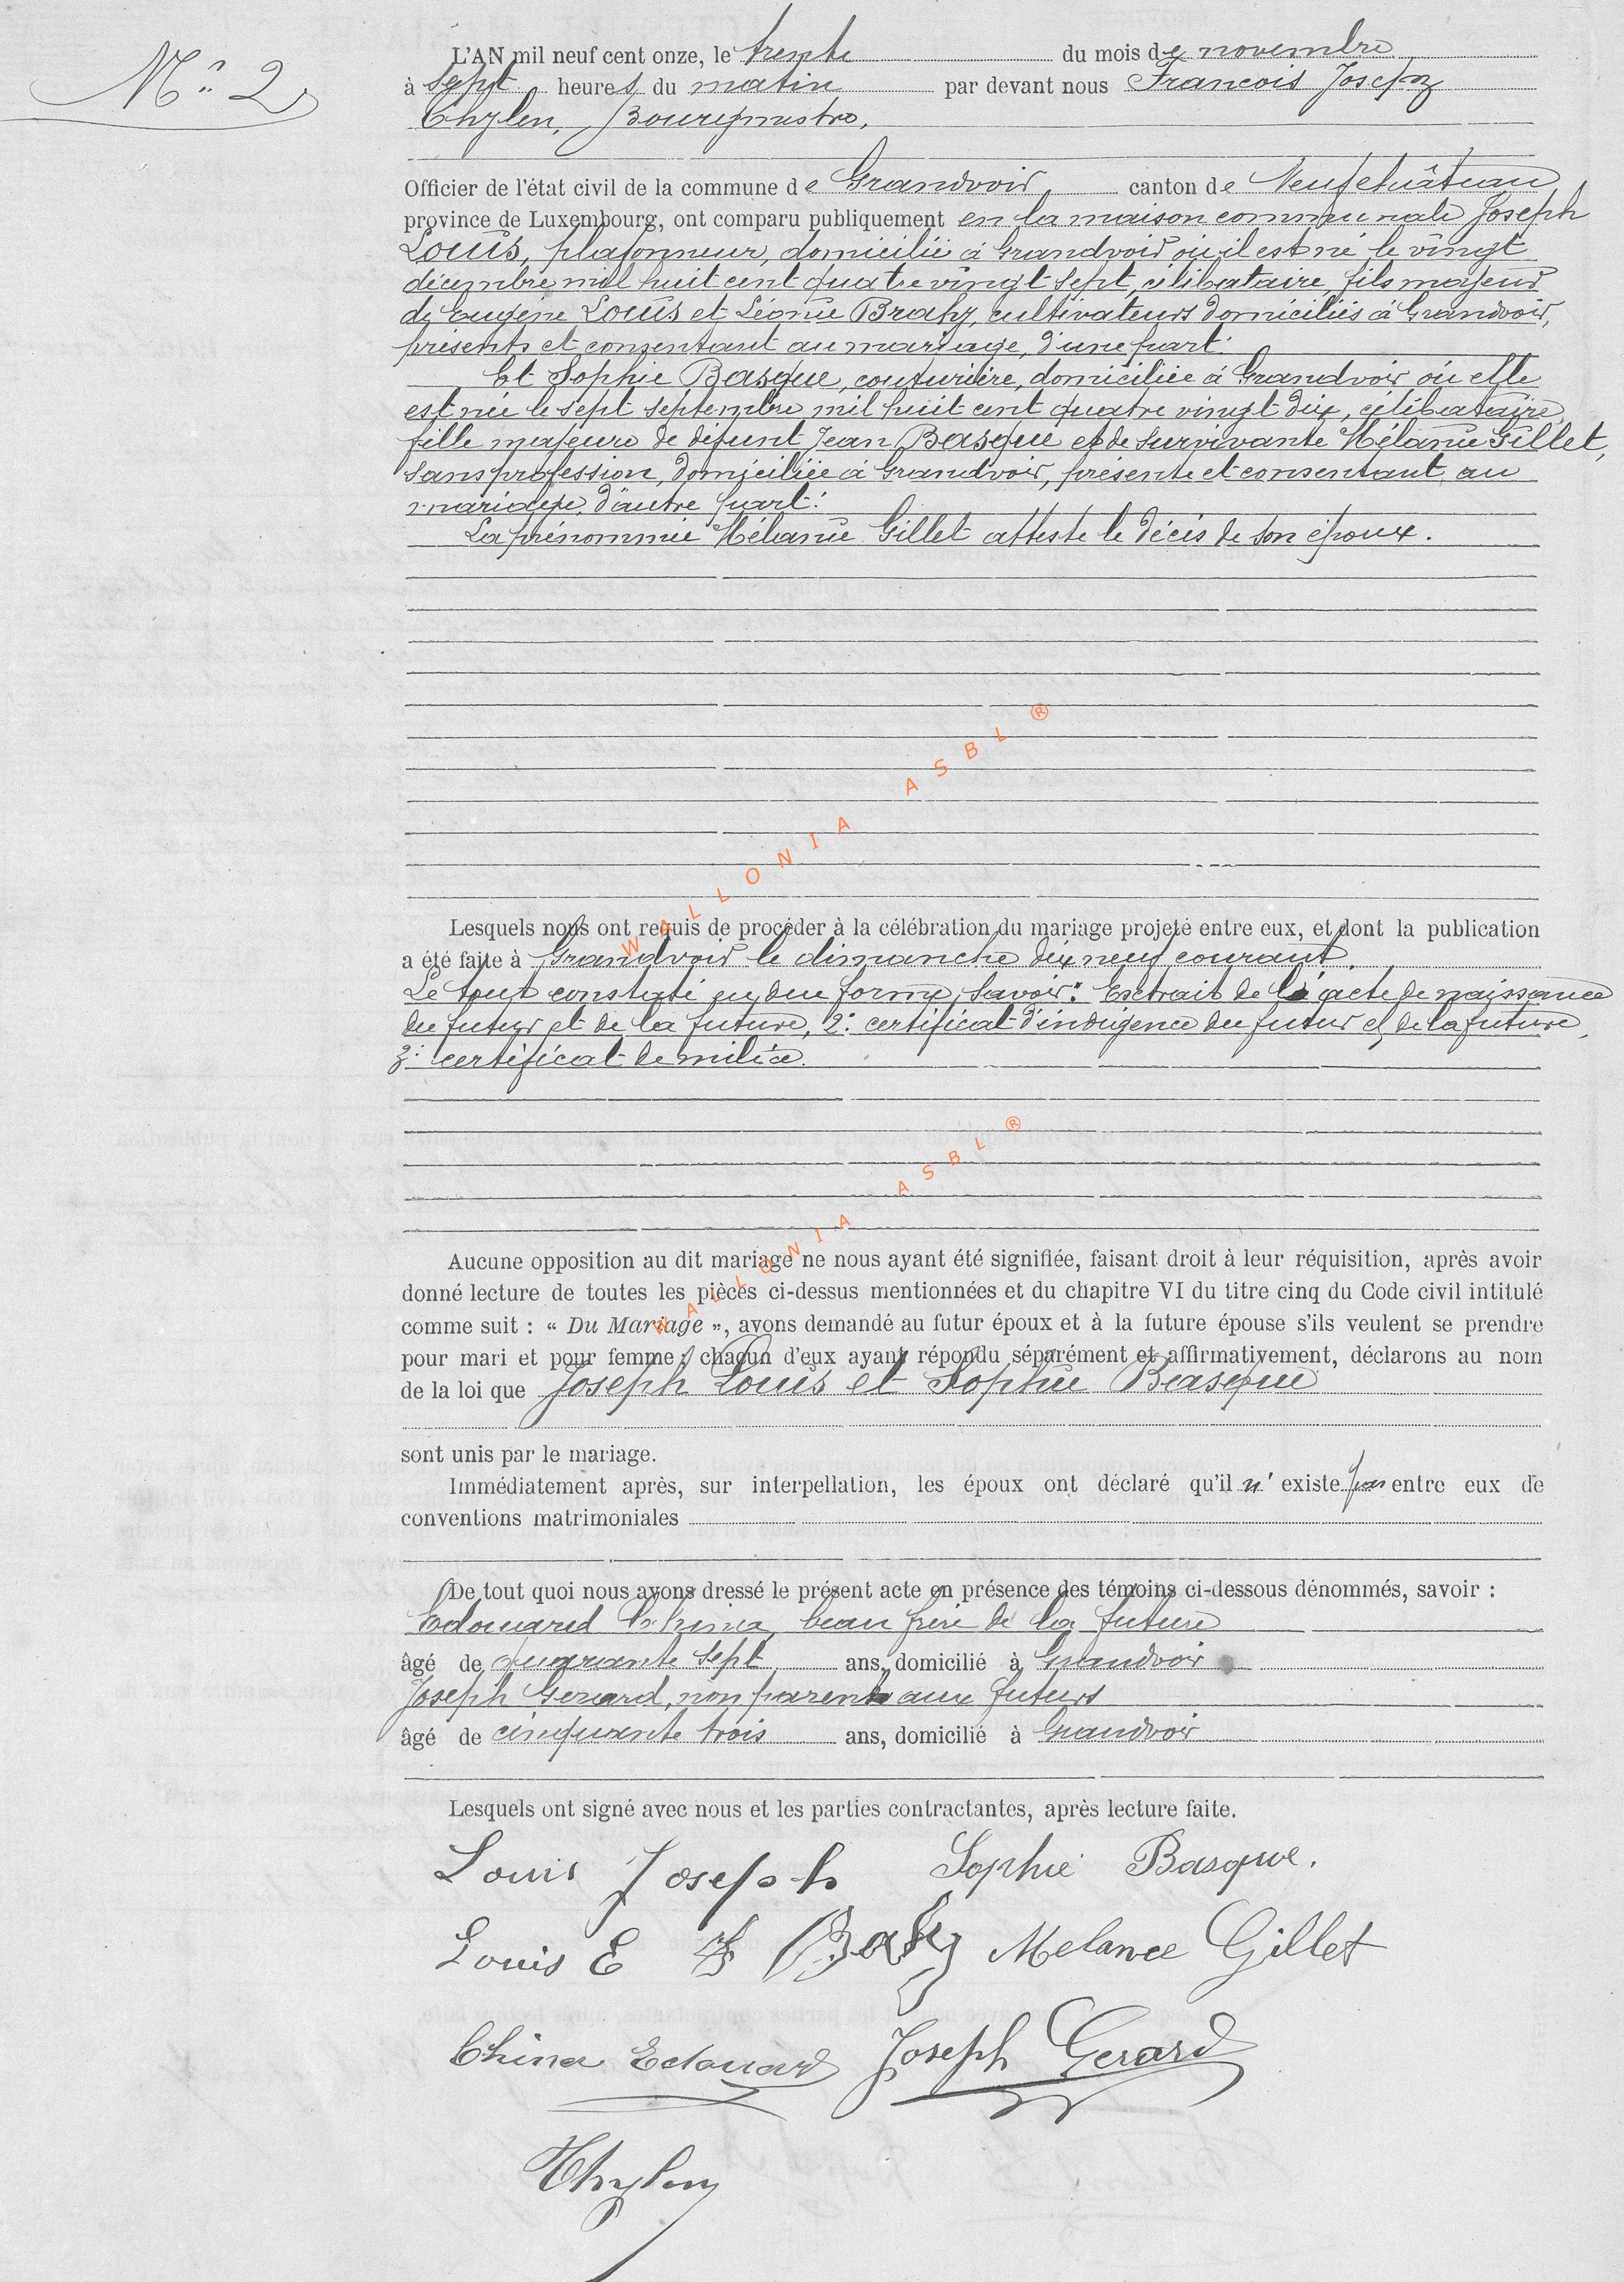 N° 2
L'AN mil neuf cent onze, le trente du mois de novembre
à sept heures du matin par devant nous François Joseph
Thylen, Bourgmestre,
Officier de l'état civil de la commune de Grandvoir, canton de Neufchâteau
province de Luxembourg, ont comparu publiquement en la maison communale Joseph
Louis, plafonneur, domicilié à Grandvoir où il est né le vingt
décembre mil huit cent quatre vingt sept, célibataire, fils majeur
de Eugène Louis et Léonie Brahy, cultivateurs domiciliés à Grandvoir,
présents et consentant au mariage, d'une part:
Et Sophie Basque, couturière, domiciliée à Grandvoir où elle
est née le sept septembre mil huit cent quatre vingt dix, célibataire,
fille majeure de défunt Jean Basque et de survivante Mélanie Gillet,
sans profession, domiciliée à Grandvoir, présente et consentant au
mariage, d'autre part:
La prénommée Mélanie Gillet atteste le décès de son époux.
Lesquels nous ont requis de procéder à la célébration du mariage projeté entre eux, et dont la publication
a été faite à Grandvoir le dimanche dix neuf courant.
Le tout constaté en due forme, savoir: Extrait de l'acte de naissance
du futur et de la future, 2: certificat d'indigence du futur et de la future,
3: certificat de milice.
Aucune opposition au dit mariage ne nous ayant été signifiée, faisant droit à leur réquisition, après avoir
donné lecture de toutes les pièces ci-dessus mentionnées et du chapitre VI du titre cinq du Code civil intitulé
comme suit : « Du Mariage », avons demandé au futur époux et à la future épouse s'ils veulent se prendre
pour mari et pour femme; chacun d'eux ayant répondu séparément et affirmativement, déclarons au nom
de la loi que Joseph Louis et Sophie Basque
sont unis par le mariage.
Immédiatement après, sur interpellation, les époux ont déclaré qu'il n' existe pas entre eux de
conventions matrimoniales
De tout quoi nous avons dressé le présent acte en présence des témoins ci-dessous dénommés, savoir :
Edouard China, beau frère de la future
âgé de quarante sept ans, domicilié à Grandvoir
Joseph Gerard, non parent aux futurs
âgé de cinquante trois ans, domicilié à Grandvoir
Lesquels ont signé avec nous et les parties contractantes, après lecture faite.
Louis Joseph Sophie Basque.
Louis E Melanee Gillet
China Edouard Joseph Gerard
Thylen
WALLONIA ASBL ®
WALLONIA ASBL ®